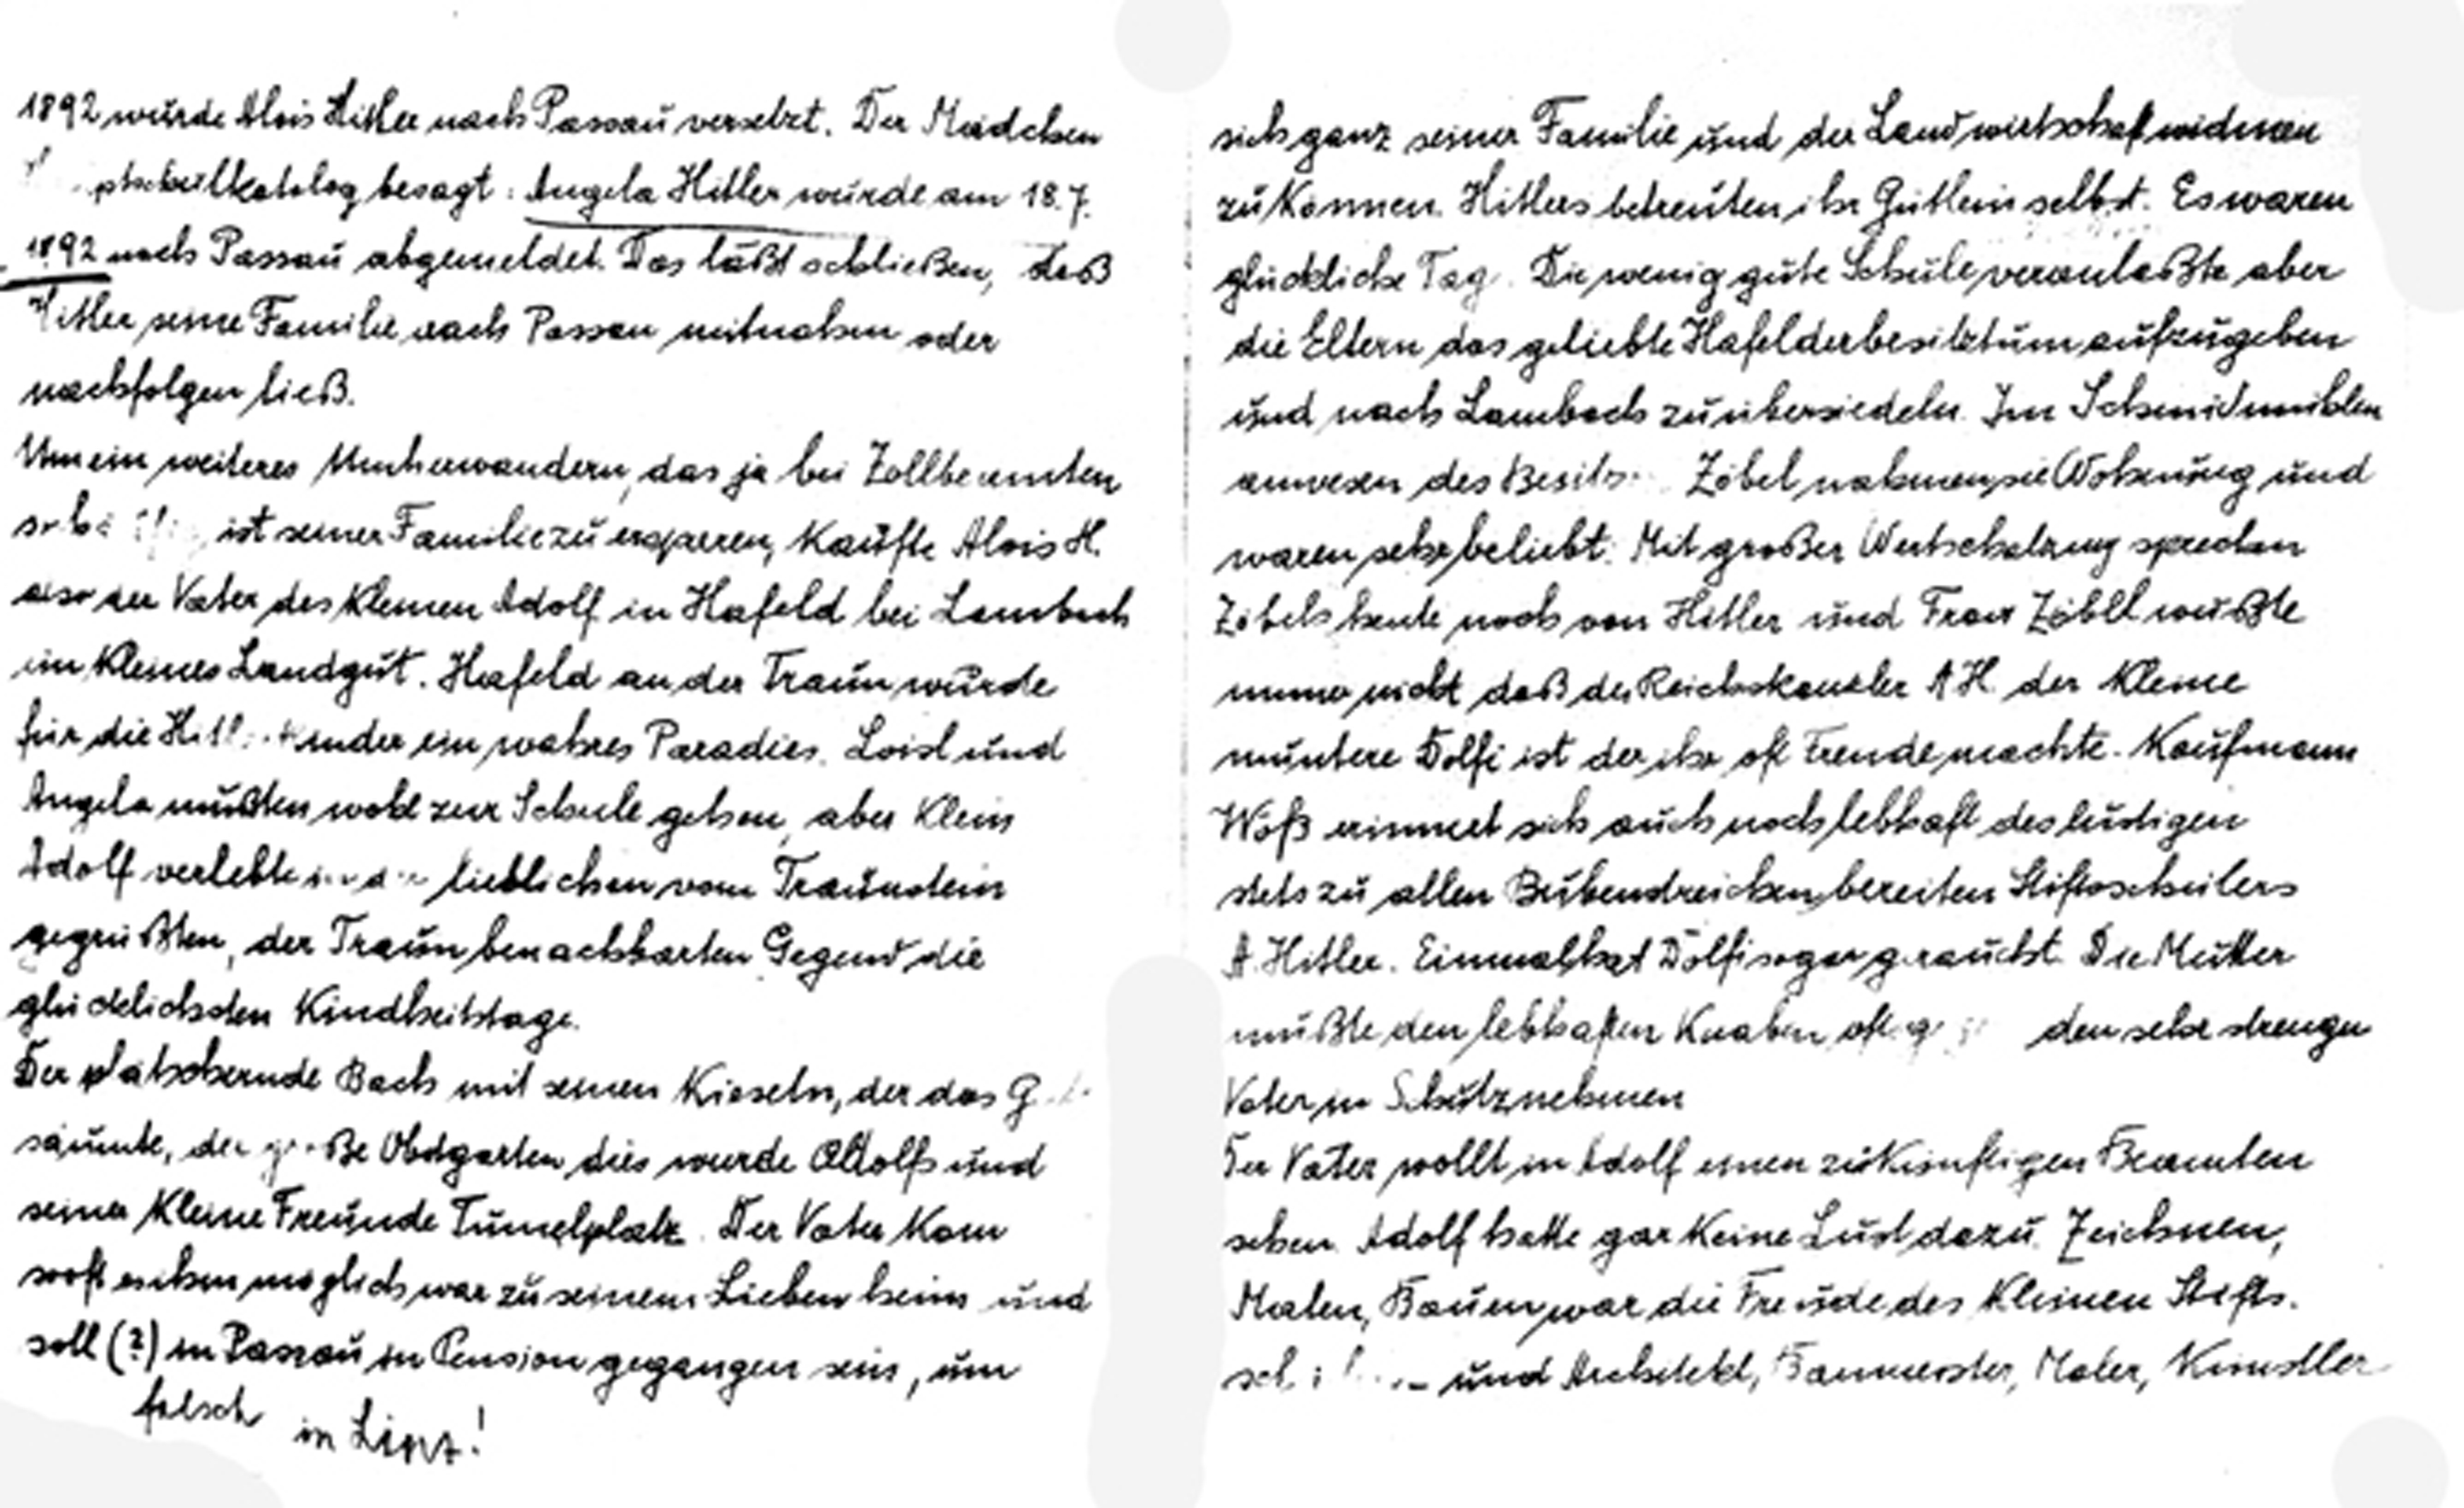 1892 wurde Alois Hitler nach Passau versetzt. Der Mädchen
ptschulkatalog besagt: Angela Hitler wurde am 18.7.
1892 nach Passau abgemeldet. Das läßt schließen, daß
Hitler seine Familie nach Passau mitnahm oder
nachfolgen ließ.
Um ein weiteres Umherwandern, das ja bei Zollbeamten
ist seiner Familie zu ersparen, kaufte Alois H.
also der Vater des kleinen Adolf in Hafeld bei Lambach
ein kleines Landgut. Hafeld an der Traun wurde
für die Hitl kinder ein wahres Paradies. Loisl und
Angela mußten wohl zur Schule gehen, aber Klein
Adolf verlebte in der lieblichen vom Traunstein
gegrüßten, der Traun benachbarten Gegend die
glücklichsten Kindheitstage.
Der plätschernde Bach mit seinen Kieseln, der das G
säumte, der große Obstgarten dies wurde Adolfs und
seiner kleine Freunde Tumelplatz. Der Vater kam
sooft es ihm möglich war zu seinem Lieben heim und
soll (?) in Passau in Pension gegangen sein, um
falsch in Linz!
sich ganz seiner Familie und der Landwirtschaft widmen
zu können. Hitlers betreuten ihr Gütlein selbst. Es waren
glückliche Tag. Die wenig gute Schule veranlaßte aber
die Eltern das geliebte Hafelderbesitztum aufzugeben
und nach Lambach zu übersiedeln. Im Schmidmühlen
anwesen des Besitz Zöbel nahmen sie Wohnung und
waren sehr beliebt. Mit großer Wertschätzung sprechen
Zöbels heute noch von Hitler und Frau Zöbll wußte
nicht daß der Reichskanzler A H. der kleine
muntere Dolfi ist der ihr oft Freude machte. Kaufmann
Woß erinnert sich auch noch lebhaft des lustigen
stets zu allen Bubenstreichen bereiten Stiftsschülers
A. Hitler. Einmal hat Dolfi sogar geraucht. Die Mutter
mußte den lebhaften Knaben oft den sehr strengen
Vater in Schutz nehmen
Der Vater wollt in Adolf einen zukünftigen Beamten
sehen. Adolf hatte gar keine Lust dazu. Zeichnen,
Malen, Bauen war die Freude des kleinen Stifts.
und Architekt, Baumeister, Maler, Künstler